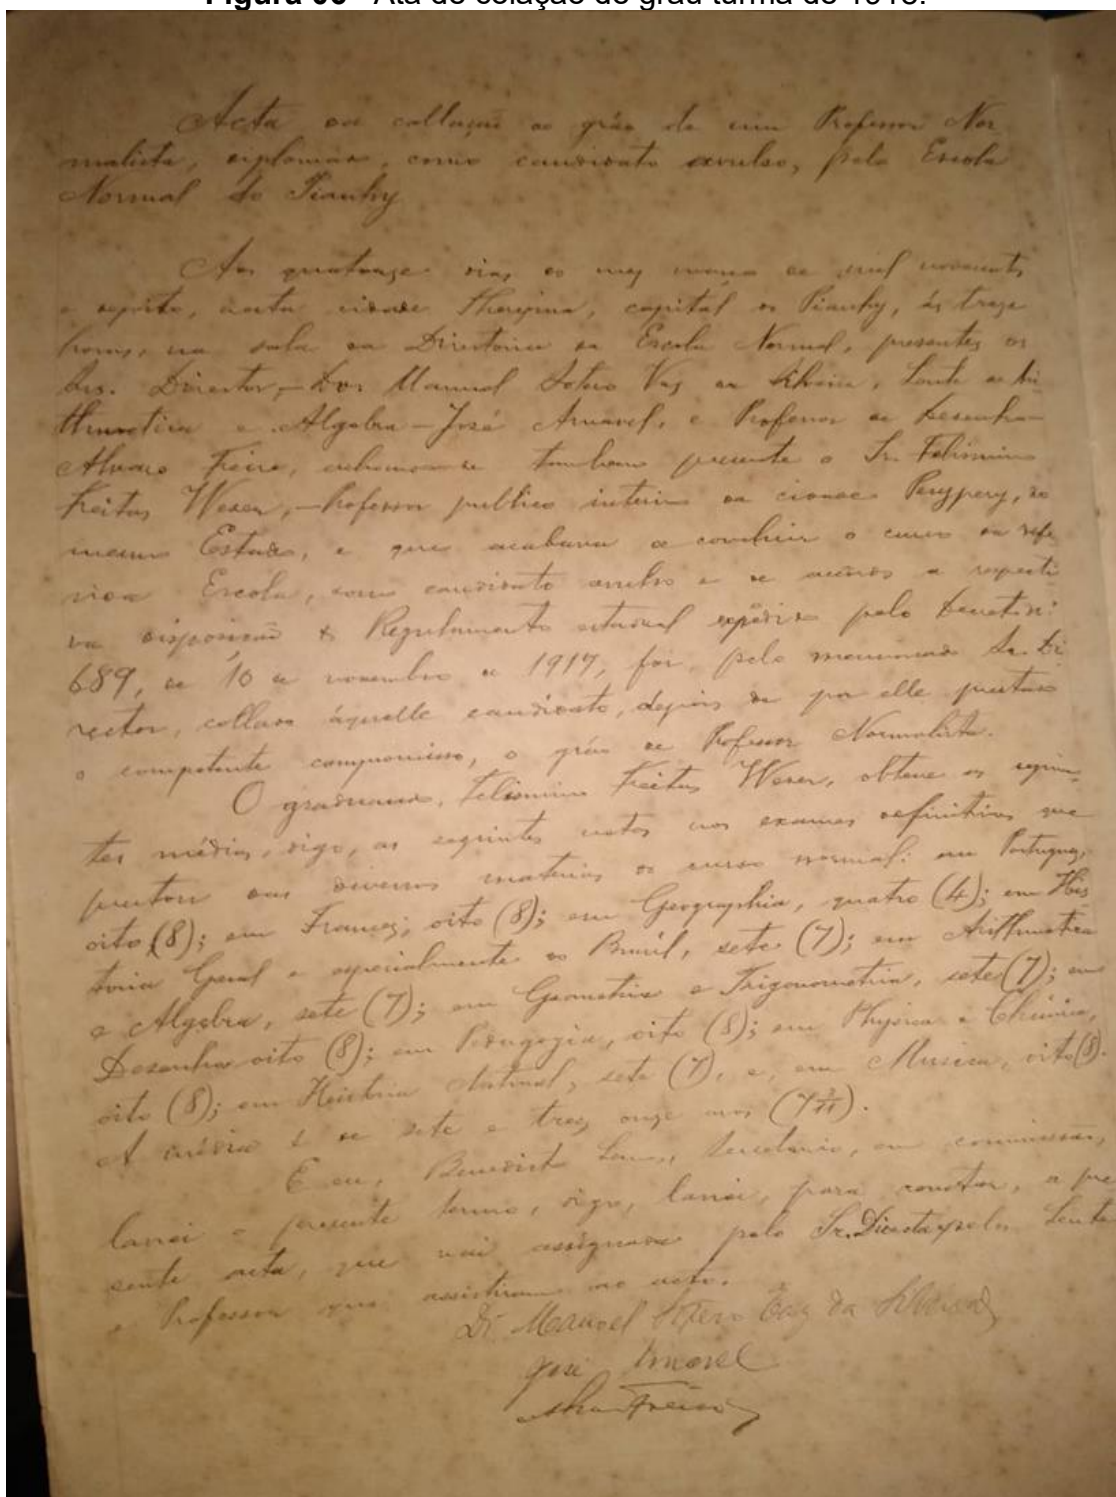 Acta da collação do gráo de um Professor Nor
malista, diplomado, como candidato avulso, pela Escola
Normal do Piauhy
Aos quatorze dias do mez março de mil novecentos
e dezoito, nesta cidade Therezina, capital do Piauhy, ás treze
horas, na sala da Directoria da Escola Normal, presentes os
Srs. Director, - Dor. Manoel Sotero Vaz da Silveira, Lente de Ari
thmetica e Algebra - José Amavel, e Professor de Desenho -
Alvaro Freire, achando-se tambem presente o Sr. Felismino
Freitas Weser, - Professor publico interino da cidade Perypery, do
mesmo Estado, e que acabava de concluir o curso da refe
rida Escola, como candidato avulso e de accôrdo a respecti
va disposição do Regulamento estadual expedido pelo Decreto n:
689, de 10 de novembro de 1917, foi, pelo mencionado Sr. Di
rector, collado áquelle candidato, depois de por elle prestado
o competente compromisso, o gráo de Professor Normalista.
O graduando, Felismino Freitas Weser, obteve as seguin
tes médias, digo, as seguintes notas nos exames definitivos que
prestou das diversas materias do curso normal: em Portuguez,
oito (8); em Francez, oito (8); em Geographia, quatro (4); em His
toria Geral e especialmente do Brasil, sete (7); em Arithmetica
e Algebra, sete (7); em Geometria e Trigonometria, sete (7); em
Desenho oito (8); em Pedagogia, oito (8); em Physica e Chimica,
oito (8); em Historia Natural, sete (7), e, em Musica, oito (8).
A média é de sete e tres onze avos (7 3/11).
E eu, Benedicto Lemos, Secretario, em commissão,
lavrei o presente termo, digo, lavrei, para constar, a pre
sente acta, que vai assignada pelo Sr. Director pelos Lente
e Professor que assistiram ao acto.
Dr. Manoel Sotero Vaz da Silveira
José Amavel
Alvaro Freire